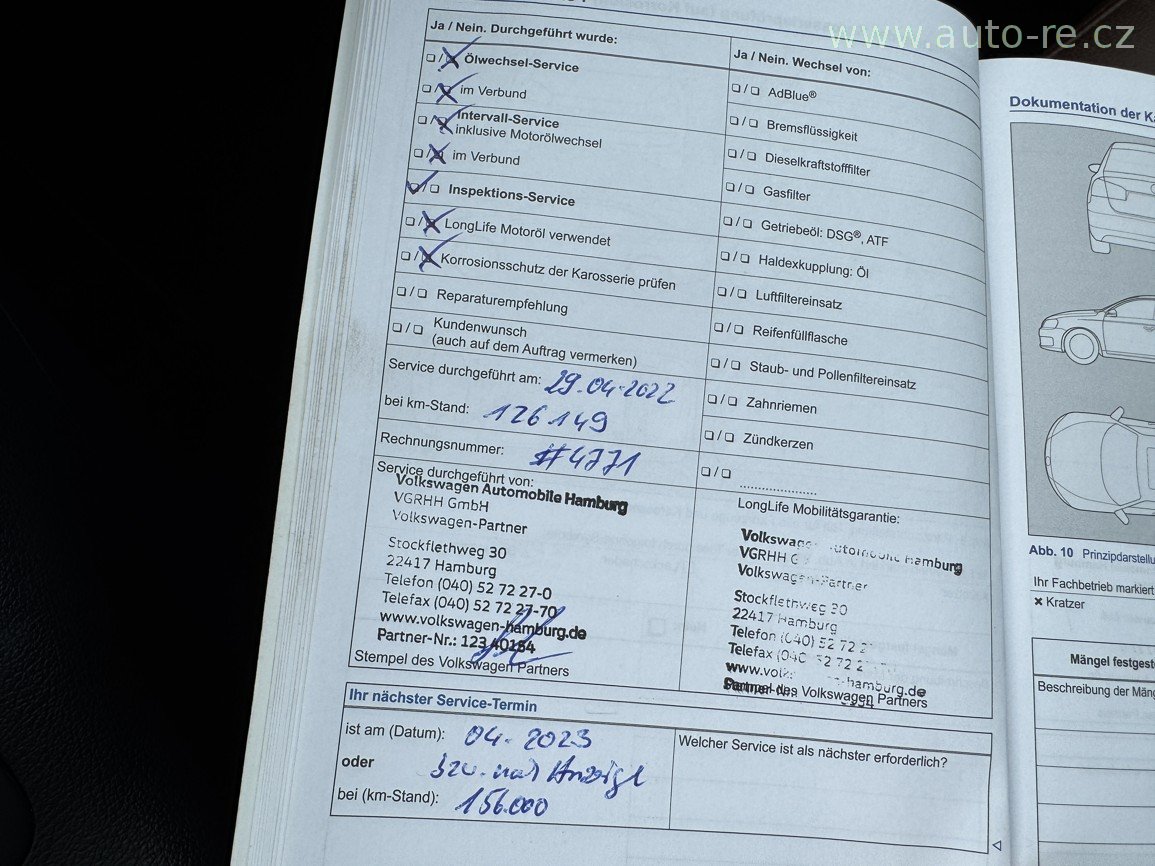 www.auto-re.cz
Ja / Nein. Durchgeführt wurde:
Ölwechsel-Service
im Verbund
Intervall-Service
inklusive Motorölwechsel
im Verbund
Inspektions-Service
LongLife Motoröl verwendet
Korrosionsschutz der Karosserie prüfen
Reparaturempfehlung
Kundenwunsch
(auch auf dem Auftrag vermerken)
Service durchgeführt am: 29.04.2022
bei km-Stand: 126149
Rechnungsnummer: #4771
Service durchgeführt von:
Volkswagen Automobile Hamburg
VGRHH GmbH
Volkswagen-Partner
Stockflethweg 30
22417 Hamburg
Telefon (040) 52 72 27-0
Telefax (040) 52 72 27-70
www.volkswagen-hamburg.de
Partner-Nr.: 123 40154
Stempel des Volkswagen Partners
Ja / Nein. Wechsel von:
AdBlue®
Bremsflüssigkeit
Dieselkraftstofffilter
Gasfilter
Getriebeöl: DSG®, ATF
Haldexkupplung: Öl
Luftfiltereinsatz
Reifenfüllflasche
Staub- und Pollenfiltereinsatz
Zahnriemen
Zündkerzen
LongLife Mobilitätsgarantie:
Volkswagen Automobile Hamburg
VGRHH G
Volkswagen-Partner
Stockflethweg 30
22417 Hamburg
Telefon (040) 52 72 2
Telefax (040) 52 72 2
www.vol hamburg.de
Stempel des Volkswagen Partners
Ihr nächster Service-Termin
ist am (Datum): 04-2023
oder bzw. nach Anzeige
bei (km-Stand): 156.000
Welcher Service ist als nächster erforderlich?
Dokumentation der
Abb. 10 Prinzipdarstellu
Ihr Fachbetrieb markiert
× Kratzer
Mängel festgest
Beschreibung der Mäng